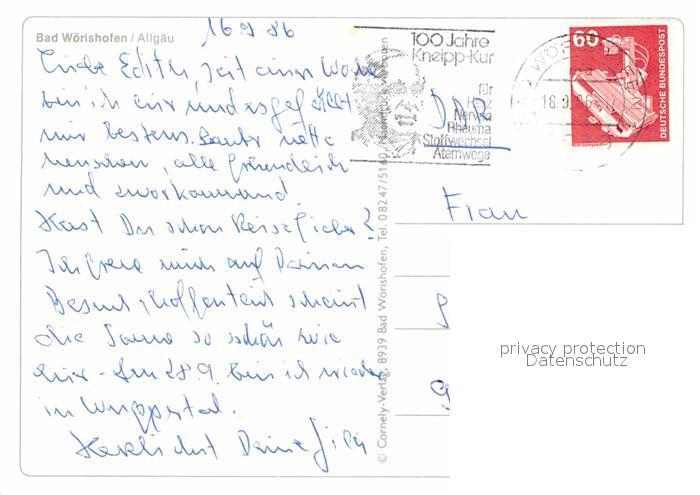 Bad Wörishofen / Allgäu
16 9 86
Liebe Edith, seit einer Woche
bin ich hier und es gefällt
mir bestens. Lauter nette
Menschen, alle freundlich
und zuvorkommend.
Hast Du schon Reisefieber?
Ich freue mich auf Deinen
Besuch, hoffentlich scheint
die Sonne so schön wie
hier - Am 28.9. bin ich wieder
in Wuppertal.
Herzlichst Deine
100 Jahre
Kneipp-Kur
für
Herz
Nerven
Rheuma
Stoffwechsel
Atemwege
18.9.86
60
DEUTSCHE BUNDESPOST
DDR
Frau
© Cornely-Verlag, 8939 Bad Wörishofen, Tel. 0 82 47/51 60
privacy protection
Datenschutz